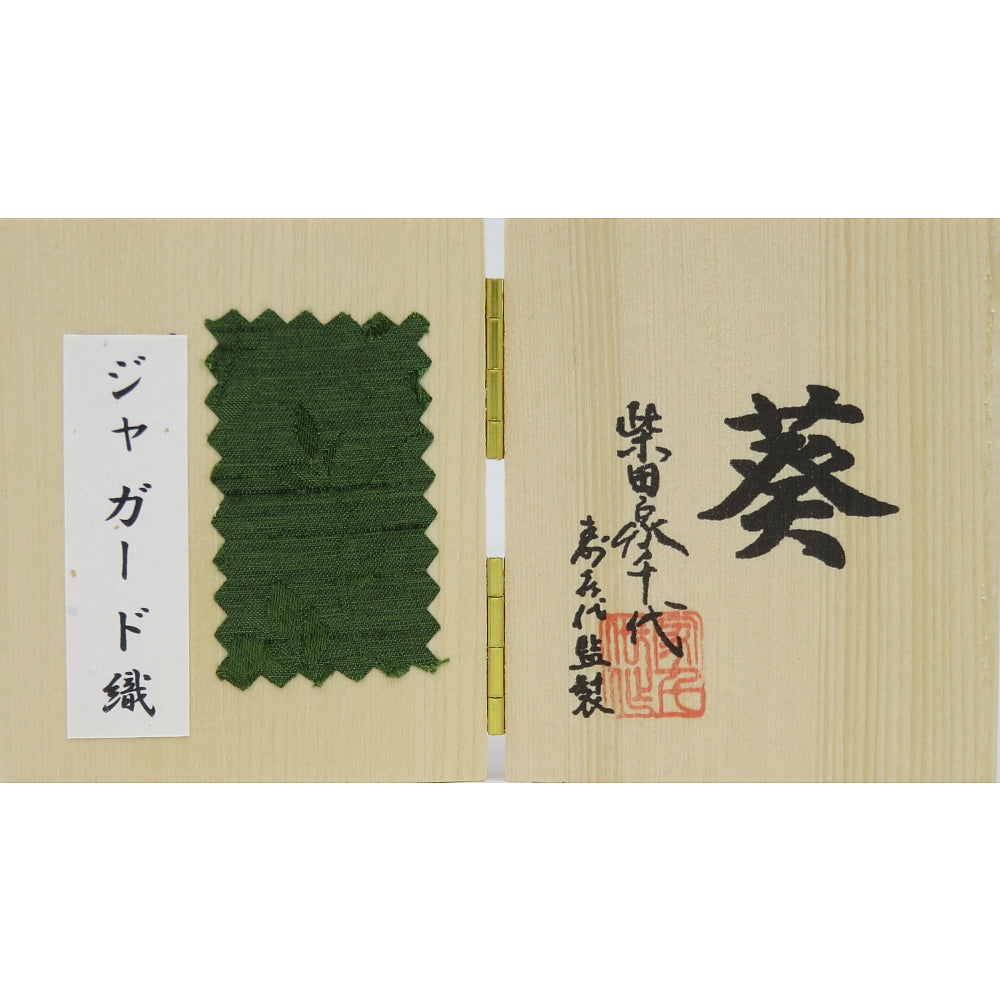 葵
柴田家千代
監製
ジャガード織